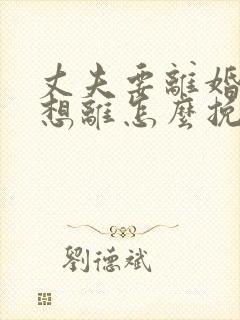 丈夫要離婚
想離怎麼挽
劉德斌